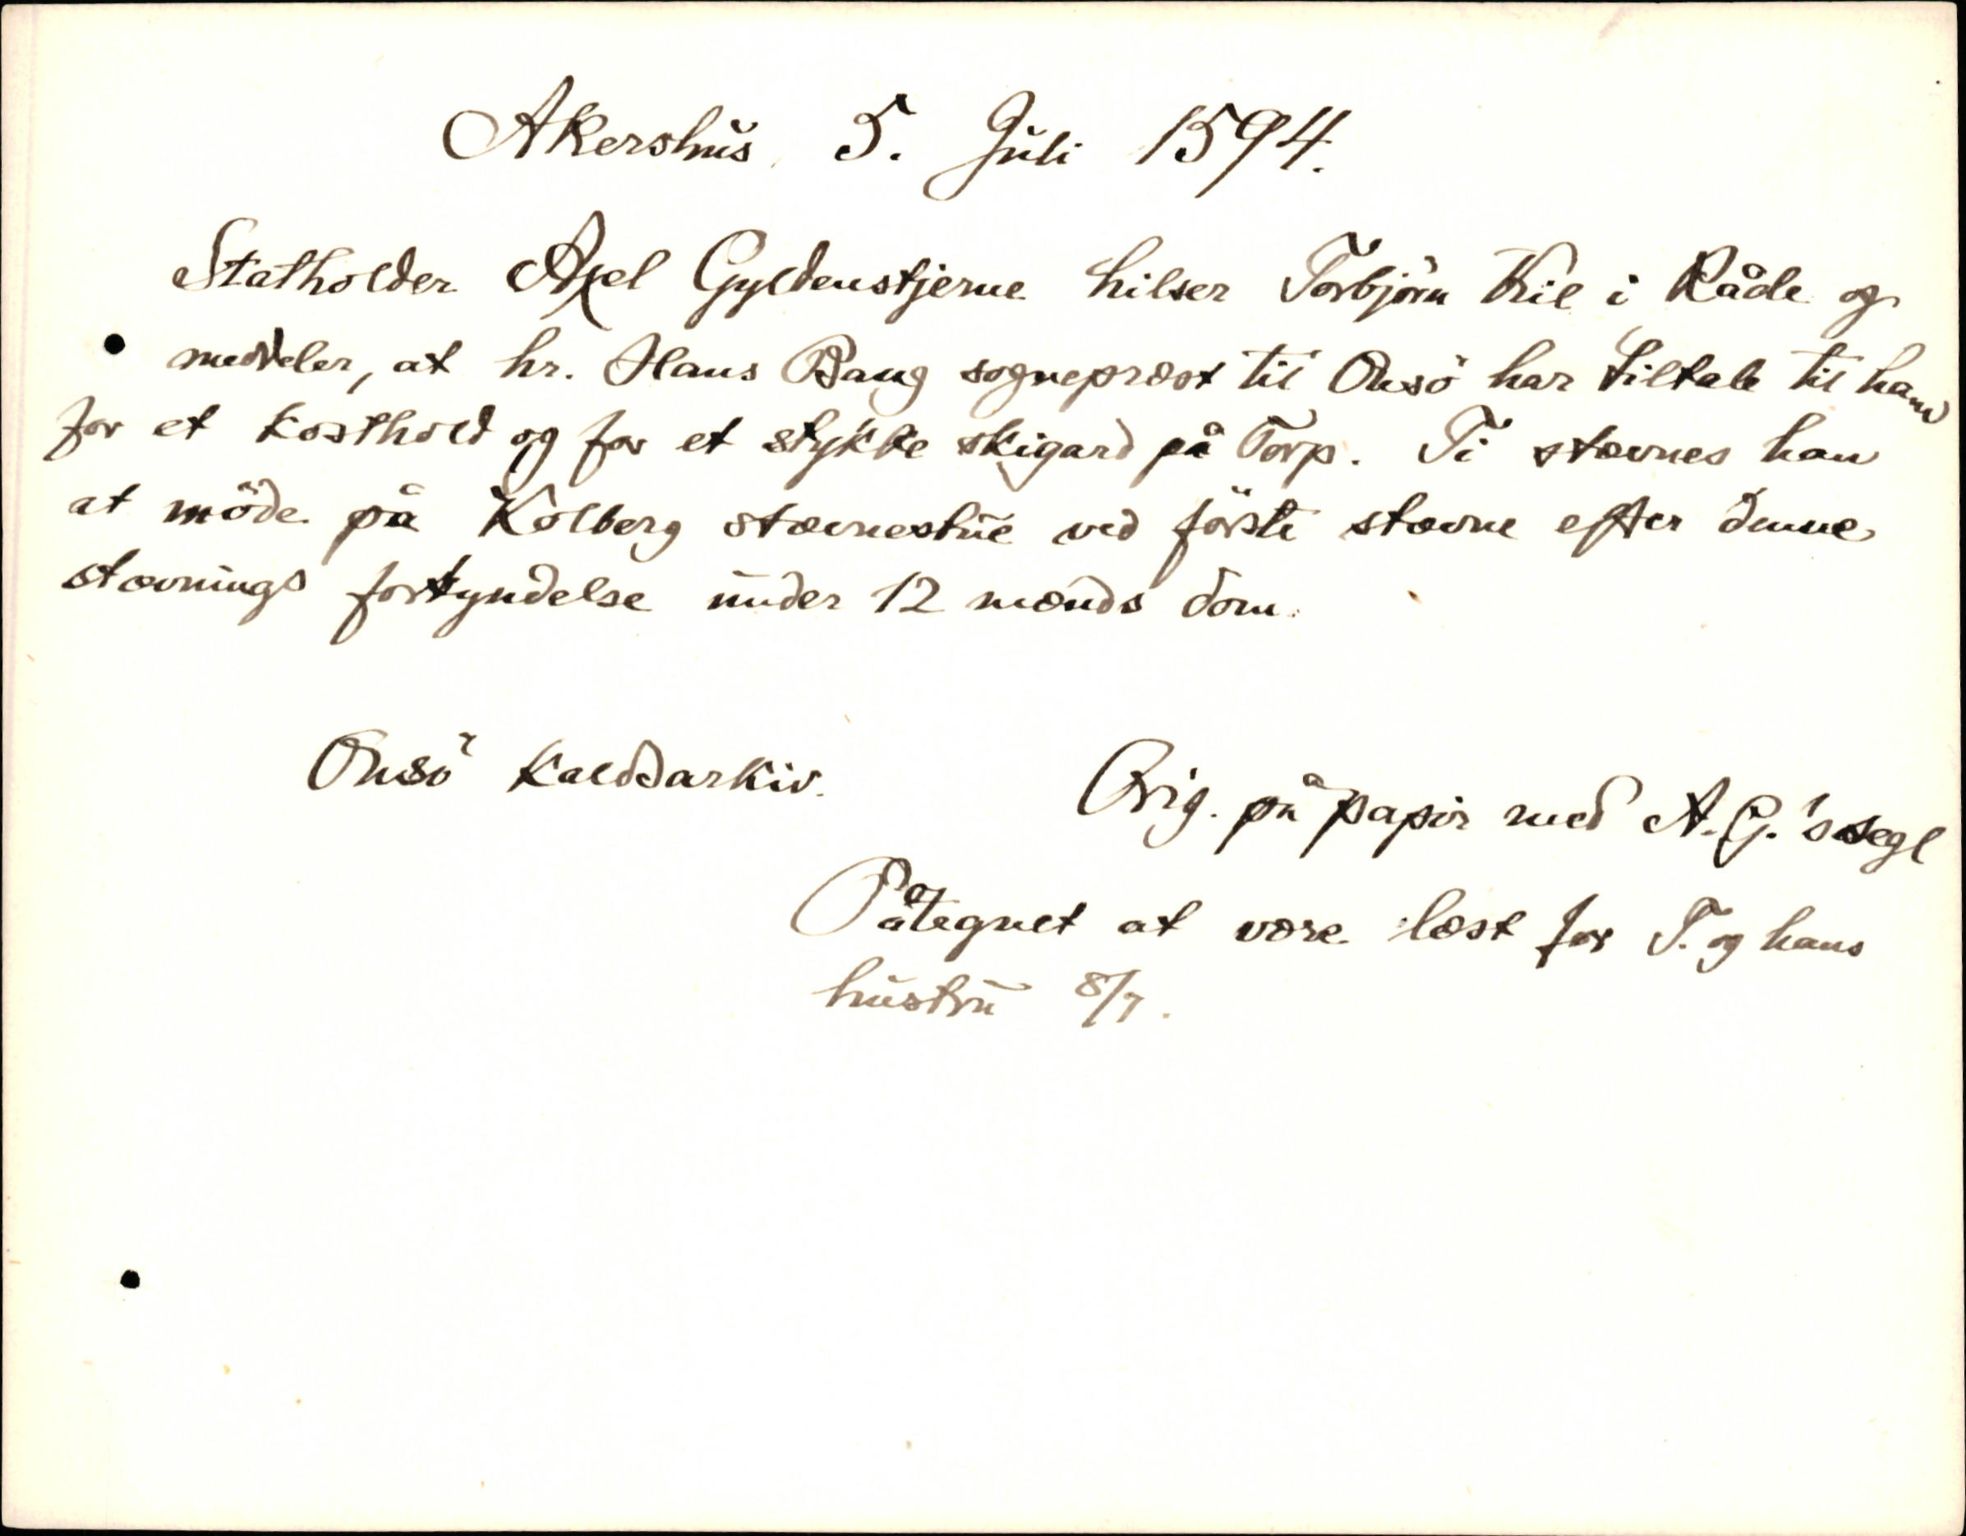 Akershus 5. Juli 1594.
Statholder Axel Gyldenstjerne hilser Torbjörn Kil i Råde og
meddeler, at hr. Hans Bang sogneprest til Onsö har tiltale til ham
for et kosthold og for et stykke skigard på Torp. Ti stævnes han
at möde på Kolberg stævnestue ved förste stævne efter denne
stævnings forkyndelse under 12 mænds dom.
Onsö kaldsarkiv.
Orig. på papir med A. G.'s segl
Påtegnet at være læst for T. og hans
hustru 8/7.